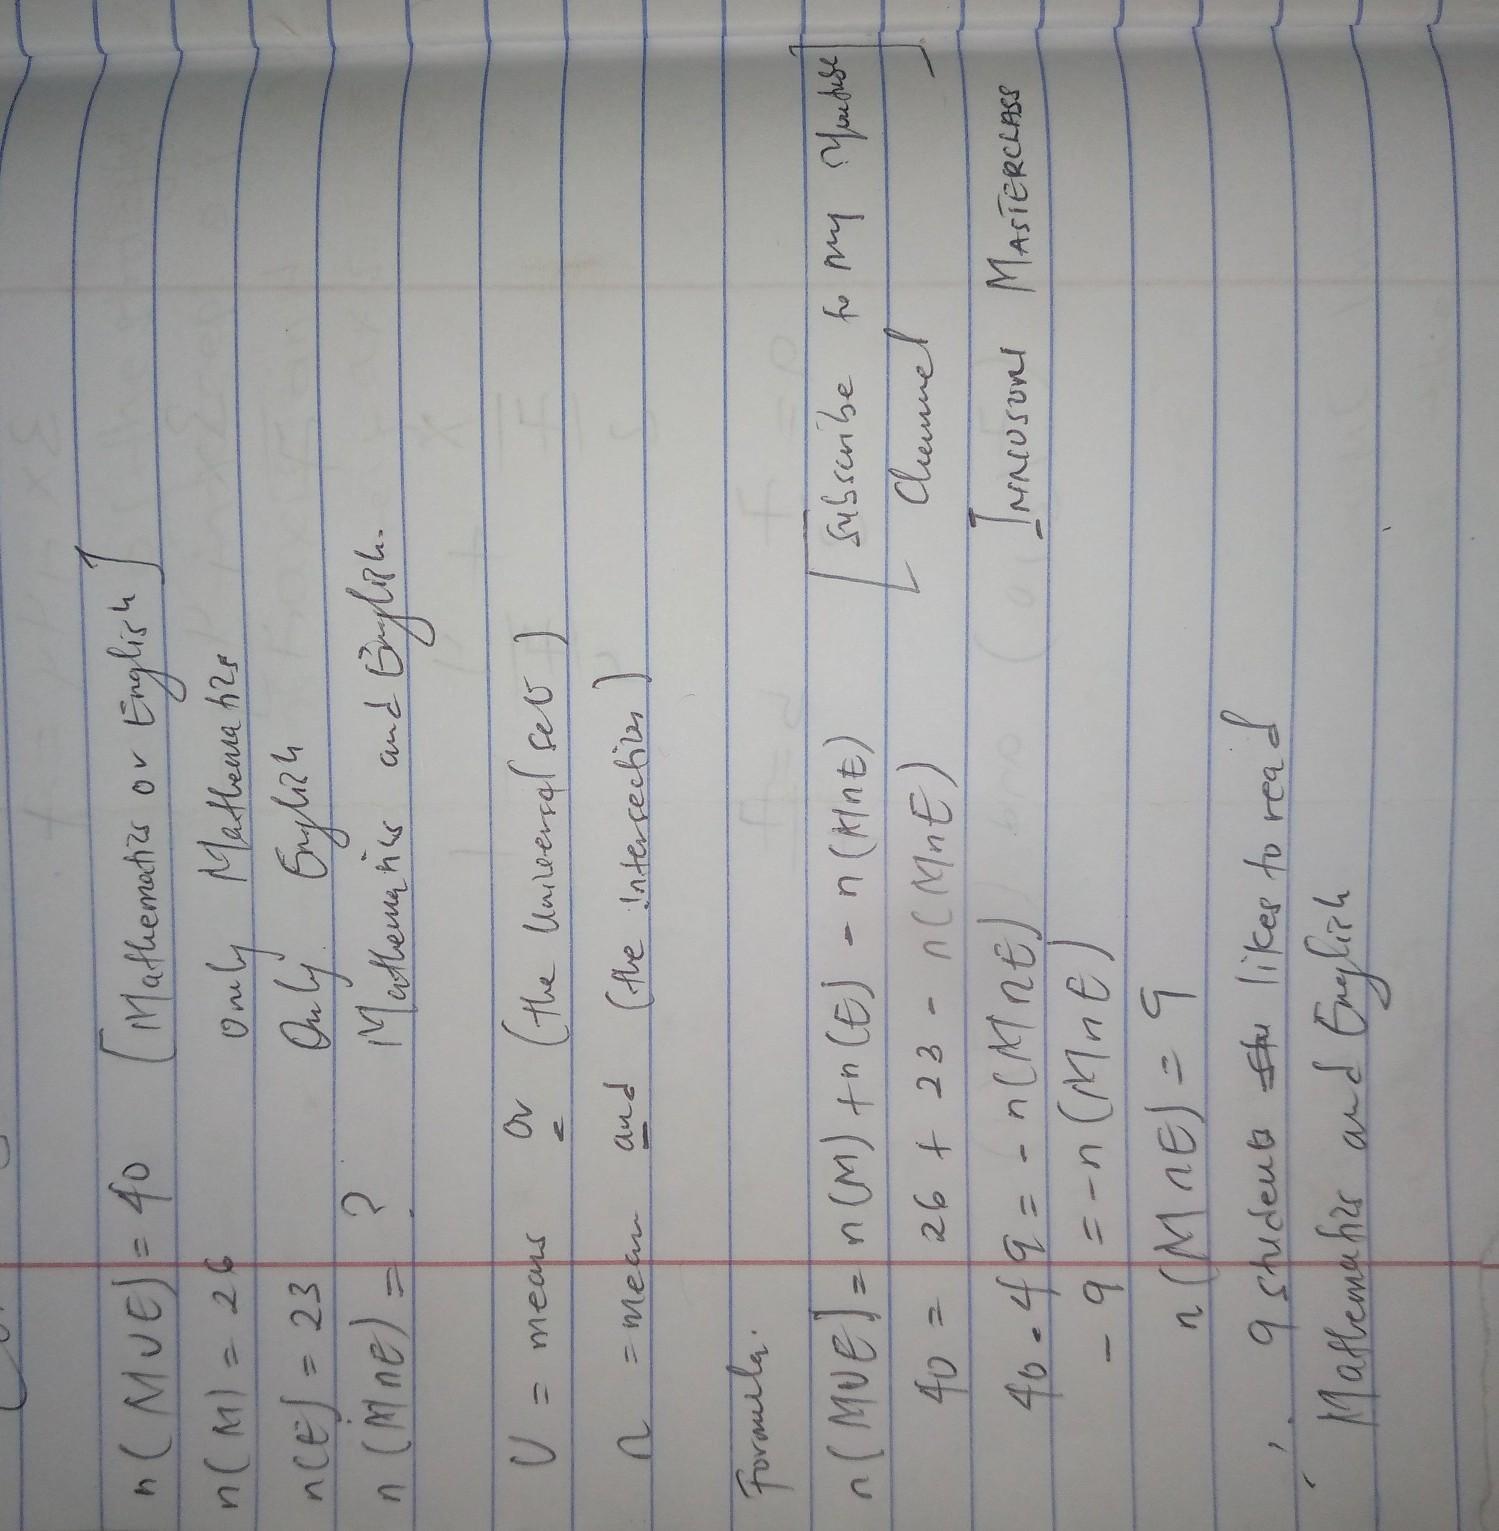 n(MUE) = 40 [Mathematics or English]
n(M) = 26 only Mathematics
n(E) = 23 Only English
n(M∩E) = ? Mathematics and English.
U = means or (the Universal set)
∩ = mean and (the intersection)
Formula.
n(MUE) = n(M) + n(E) - n(M∩E) [Subscribe to my Youtube
40 = 26 + 23 - n(M∩E) Channel]
40 - 49 = - n(M∩E) MASTERCLASS
- 9 = - n(M∩E)
n(M∩E) = 9
9 students likes to read
Mathematics and English